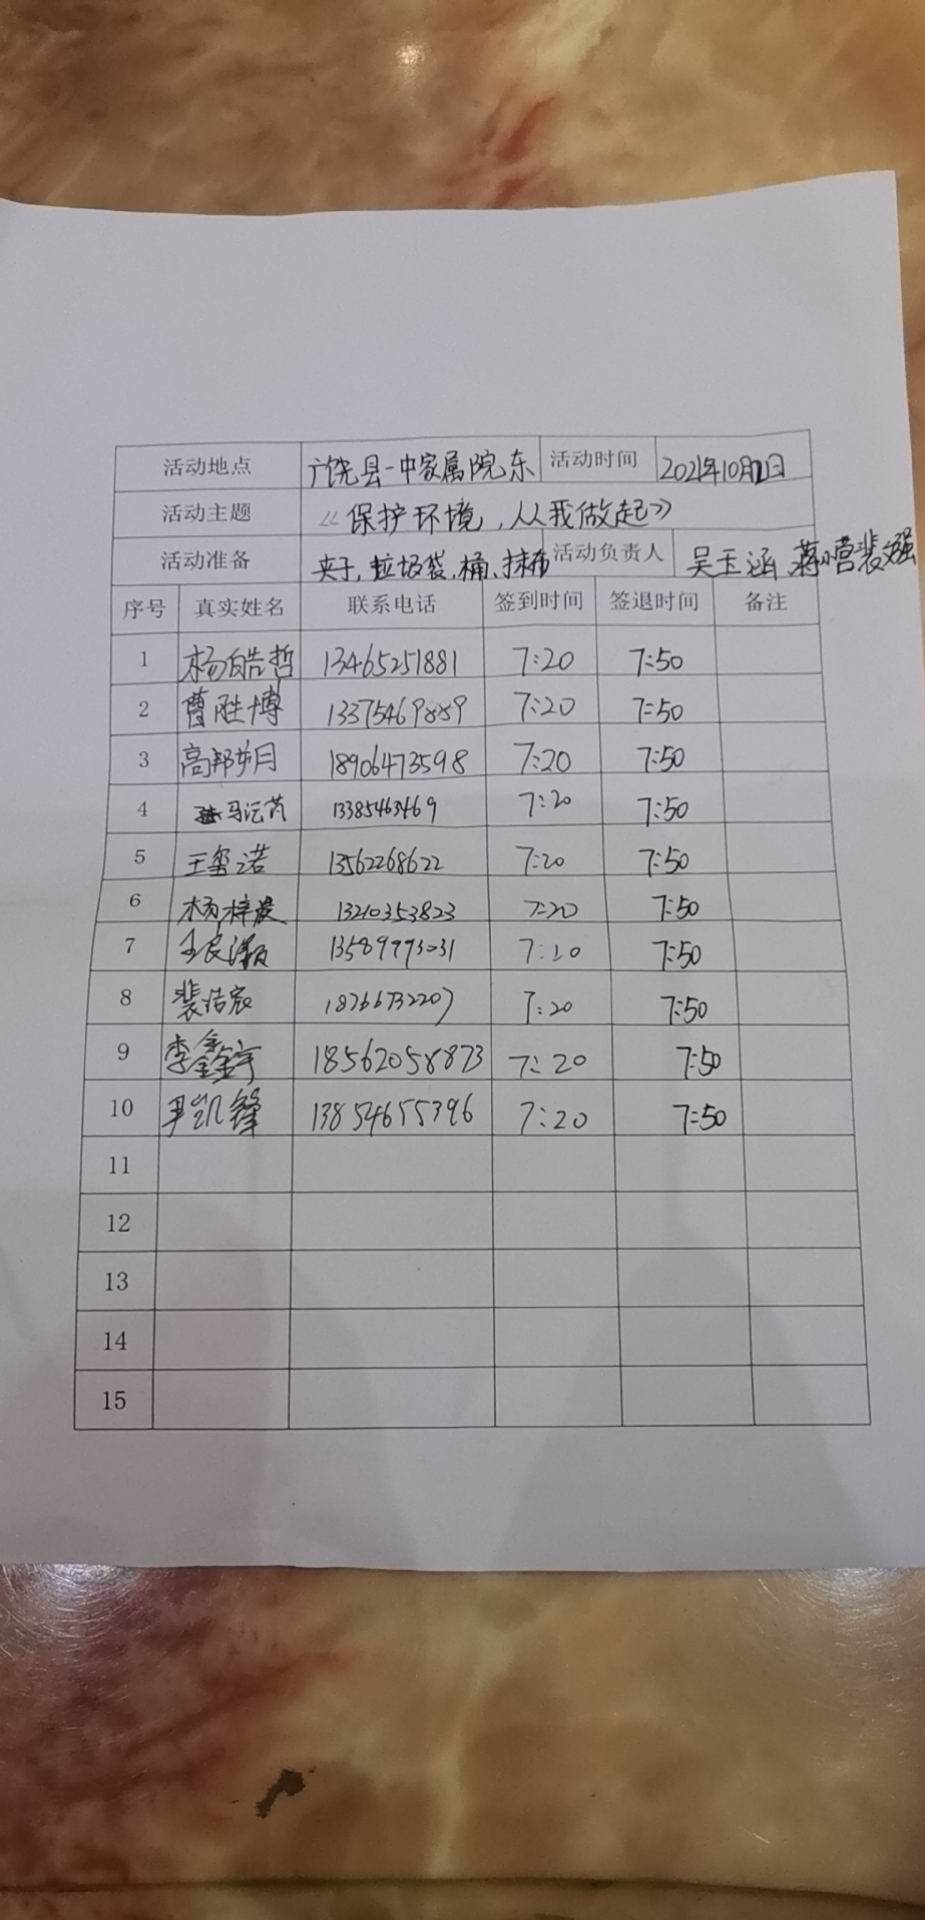 活动地点 广饶县一中家属院东 活动时间 2021年10月2日
活动主题 《保护环境,从我做起》
活动准备 夹子,垃圾袋,桶,抹布 活动负责人 吴玉涵、蒋小营裴文强
序号 真实姓名 联系电话 签到时间 签退时间 备注
1 杨皓哲 13465251881 7:20 7:50
2 曹胜博 13375469889 7:20 7:50
3 高邦玥 18906473598 7:20 7:50
4 马沄芮 13385463469 7:20 7:50
5 王玺诺 13562268622 7:20 7:50
6 杨梓 13210353823 7:20 7:50
7 王良灏 13589993031 7:20 7:50
8 裴浩宸 18766732207 7:20 7:50
9 李鑫宇 18562058873 7:20 7:50
10 尹凯锋 13854655396 7:20 7:50
11
12
13
14
15